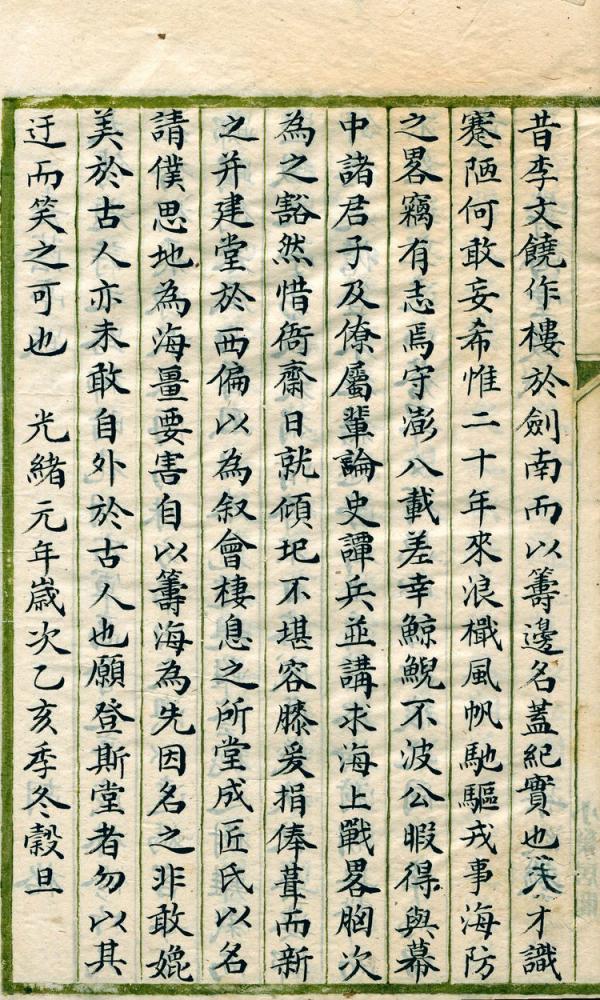 昔李文饒作樓於劍南而以籌邊名蓋紀實也僕才識
蹇陋何敢妄希惟二十年來浪檝風帆馳驅戎事海防
之畧竊有志焉守澎八載差幸鯨鯢不波公暇得與幕
中諸君子及僚屬輩論史譚兵並講求海上戰畧胸次
為之豁然惜衙齋日就傾圮不堪容膝爰捐俸葺而新
之并建堂於西偏以為叙會棲息之所堂成匠氏以名
請僕思地為海疆要害自以籌海為先因名之非敢媲
美於古人亦未敢自外於古人也願登斯堂者勿以其
迂而笑之可也　光緒元年歲次乙亥季冬穀旦